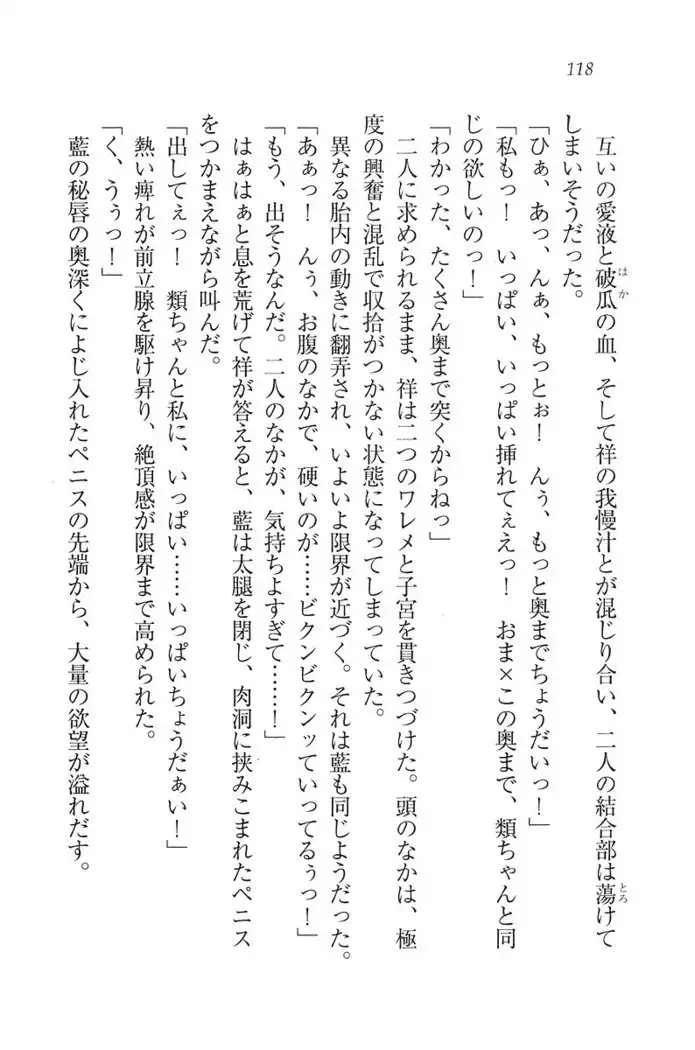 118
互いの愛液と破瓜の血、そして祥の我慢汁とが混じり合い、二人の結合部は蕩けて
はか
とろ
しまいそうだった。
「ひぁ、あっ、んぁ、もっとぉ！　んぅ、もっと奥までちょうだいっ！」
「私もっ！　いっぱい、いっぱい挿れてぇえっ！　おま×この奥まで、類ちゃんと同
じの欲しいのっ！」
「わかった、たくさん奥まで突くからねっ」
二人に求められるまま、祥は二つのワレメと子宮を貫きつづけた。頭のなかは、極
度の興奮と混乱で収拾がつかない状態になってしまっていた。
異なる胎内の動きに翻弄され、いよいよ限界が近づく。それは藍も同じようだった。
「あぁっ！　んぅ、お腹のなかで、硬いのが……ビクンビクンッていってるぅっ！」
「もう、出そうなんだ。二人のなかが、気持ちよすぎて……！」
はぁはぁと息を荒げて祥が答えると、藍は太腿を閉じ、肉洞に挟みこまれたペニス
をつかまえながら叫んだ。
「出してぇっ！　類ちゃんと私に、いっぱい……いっぱいちょうだぁい！」
熱い痺れが前立腺を駆け昇り、絶頂感が限界まで高められた。
「く、うぅっ！」
藍の秘唇の奥深くによじ入れたペニスの先端から、大量の欲望が溢れだす。